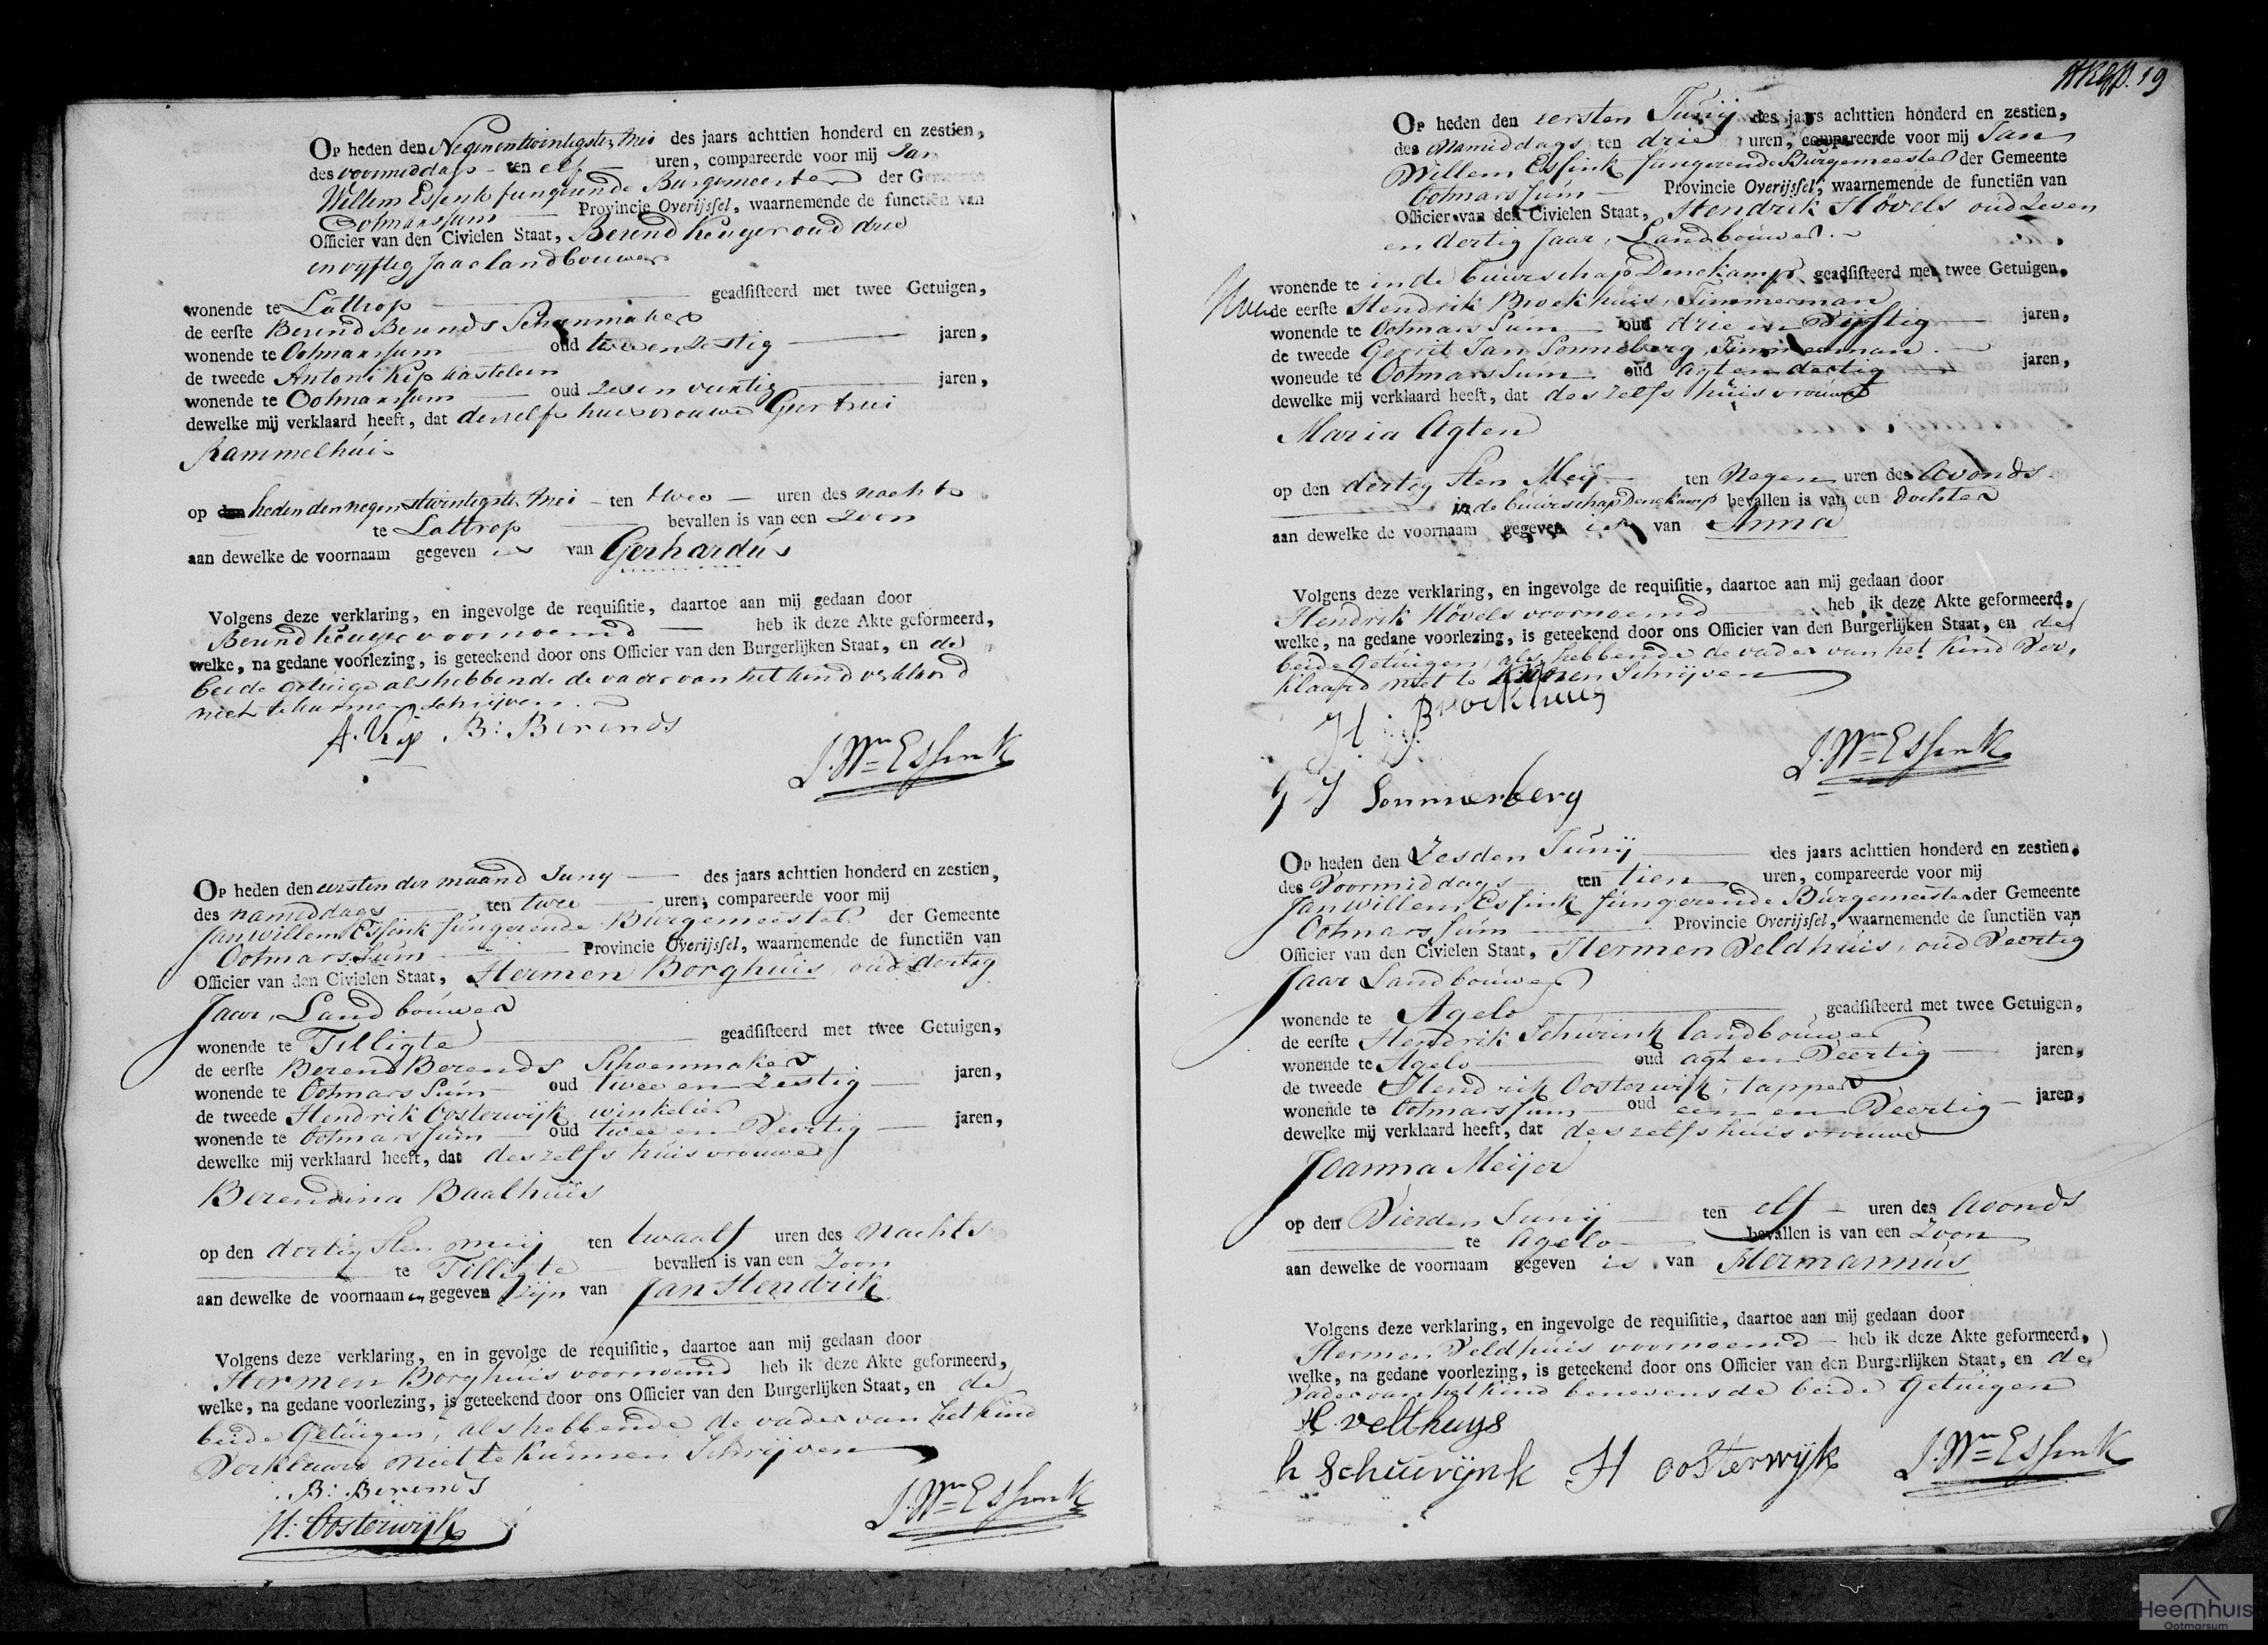 Op heden den Negenentwintigste Mei des jaars achttien honderd en zestien,
des voormiddags ten elf uren, compareerde voor mij Jan
Willem Essink fungerende Burgemeester der Gemeente
Ootmarssum Provincie Overijssel, waarnemende de functiën van
Officier van den Civielen Staat, Berend Keuger oud drie
en vyftig Jaar landbouwer
wonende te Lattrop geadsisteerd met twee Getuigen,
de eerste Berend Berends Schoenmaker
wonende te Ootmarssum oud twe en zestig jaren,
de tweede Antoni Kip kastelein
wonende te Ootmarssum oud zes en veertig jaren,
dewelke mij verklaard heeft, dat deszelfs huisvrouwe Geertrui
Rammelhuis
op heden den negenentwintigste Mei ten twee uren des nachts
te Lattrop bevallen is van een zoon
aan dewelke de voornaam gegeven is van Gerhardus
Volgens deze verklaring, en ingevolge de requisitie, daartoe aan mij gedaan door
Berend Keuger voornoemd heb ik deze Akte geformeerd,
welke, na gedane voorlezing, is geteekend door ons Officier van den Burgerlijken Staat, en de
beide getuige als hebbende de vader van het kind verklaard
niet te kunnen schrijven.
A. Kip B: Berends
J. Wm Essink
Op heden den eersten der maand Juny des jaars achttien honderd en zestien,
des namiddags ten twee uren, compareerde voor mij
Jan Willem Essink fungerende Burgemeester der Gemeente
Ootmarssum Provincie Overijssel, waarnemende de functiën van
Officier van den Civielen Staat, Hermen Borghuis, oud dertig
Jaar, Landbouwer
wonende te Tilligte geadsisteerd met twee Getuigen,
de eerste Berend Berends Schoenmaker
wonende te Ootmarssum oud twee en Zestig jaren,
de tweede Hendrik Oosterwijk winkelier
wonende te Ootmarssum oud twee en Veertig jaren,
dewelke mij verklaard heeft, dat deszelfs huisvrouwe
Berendina Baalhuis
op den dertigsten Meij ten twaalf uren des Nachts
te Tilligte bevallen is van een Zoon
aan dewelke de voornaamen gegeven zijn van Jan Hendrik
Volgens deze verklaring, en in gevolge de requisitie, daartoe aan mij gedaan door
Hermen Borghuis voornoemd heb ik deze Akte geformeerd,
welke, na gedane voorlezing, is geteekend door ons Officier van den Burgerlijken Staat, en de
beide Getuigen, als hebbende de vader van het kind
Verklaard niet te kunnen Schrijven
B: Berends
H. Oosterwijk
J. Wm Essink
19
Op heden den eersten Junij des jaars achttien honderd en zestien,
des Namiddags ten drie uren, compareerde voor mij Jan
Willem Essink fungerende Burgemeester der Gemeente
Ootmarssum Provincie Overijssel, waarnemende de functiën van
Officier van den Civielen Staat, Hendrik Hövels oud Zeven
en dertig Jaar, Landbouwer.
wonende te in de buurschap Denekamp geadsisteerd met twee Getuigen,
de eerste Hendrik Broekhuis, Timmerman
wonende te Ootmarssum oud drie en Vijftig jaren,
de tweede Gerrit Jan Sonneberg, Timmerman
wonende te Ootmarssum oud agt en dertig jaren,
dewelke mij verklaard heeft, dat deszelfs huisvrouwe
Maria Agten
op den dertigsten Meij ten Negen uren des Avonds
in de buurschap Denekamp bevallen is van een dochter
aan dewelke de voornaam gegeven is van Anna
Volgens deze verklaring, en ingevolge de requisitie, daartoe aan mij gedaan door
Hendrik Hövels voornoemd heb ik deze Akte geformeerd,
welke, na gedane voorlezing, is geteekend door ons Officier van den Burgerlijken Staat, en de
beide Getuigen, als hebbende de vader van het kind Ver,
klaard niet te kunnen Schrijven
H. Broekhuis
J. Wm Essink
G J Sommerberg
Op heden den Zesden Junij des jaars achttien honderd en zestien,
des Voormiddags ten tien uren, compareerde voor mij
Jan Willem Essink fungerende Burgemeester der Gemeente
Ootmarssum Provincie Overijssel, waarnemende de functiën van
Officier van den Civielen Staat, Hermen Veldhuis, oud Veertig
Jaar Landbouwer
wonende te Agelo geadsisteerd met twee Getuigen,
de eerste Hendrik Schurink landbouwer
wonende te Agelo oud agt en Veertig jaren,
de tweede Hendrik Oosterwijk, tapper
wonende te Ootmarssum oud een en Veertig jaren,
dewelke mij verklaard heeft, dat deszelfs huisvrouwe
Joanna Meijer
op den Vierden Junij ten elf uren des Avonds
te Agelo bevallen is van een Zoon
aan dewelke de voornaam gegeven is van Hermannus
Volgens deze verklaring, en ingevolge de requisitie, daartoe aan mij gedaan door
Hermen Veldhuis voornoemd heb ik deze Akte geformeerd,
welke, na gedane voorlezing, is geteekend door ons Officier van den Burgerlijken Staat, en de
Vader van het kind benevens de beide Getuigen
H. velthuys
h Schuirijnk H oosterwyk J. Wm Essink
Heemhuis
Ootmarsum